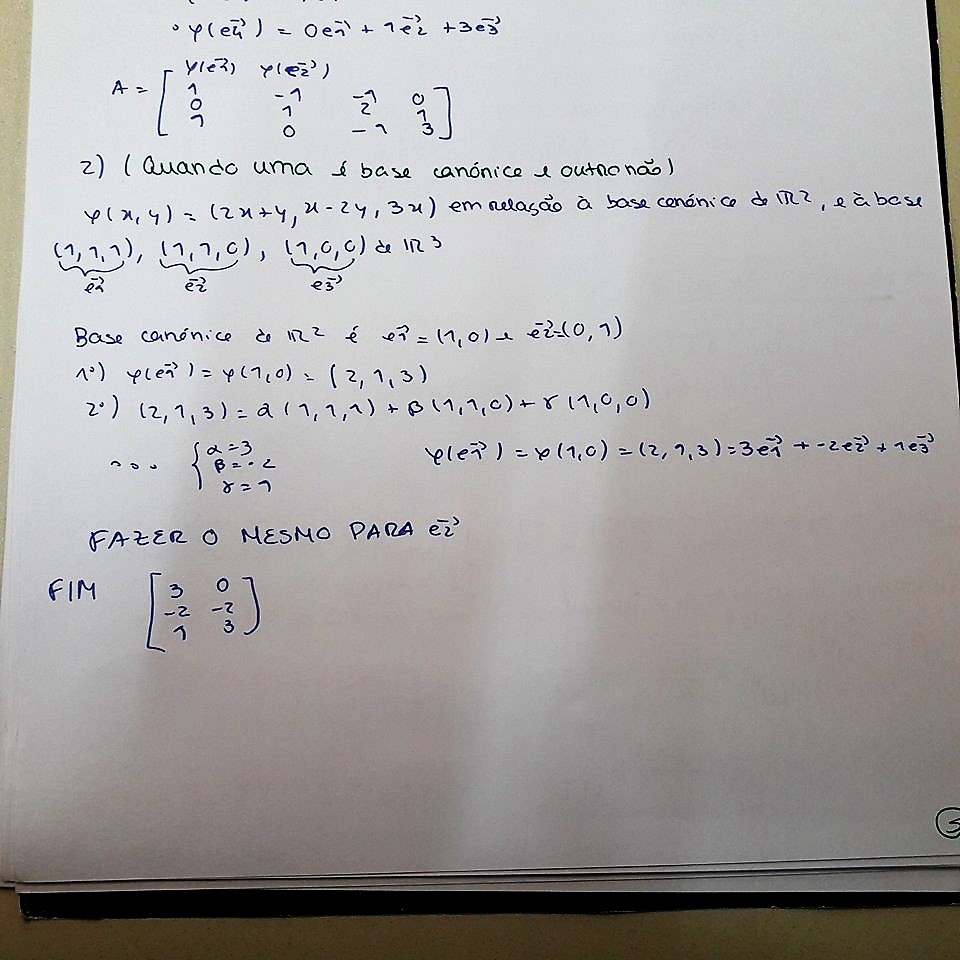 ° φ(e4⃗) = 0e1⃗ + 1e2⃗ + 3e3⃗
φ(e1⃗) φ(e2⃗)
A = [ 1 -1 -1 0
0 1 2 1
1 0 -1 3 ]
2) (Quando uma é base canónice e outro não)
φ(x,y) = (2x+y, x-2y, 3x) em relação à base canónice de IR2, e à base
(1,1,1), (1,1,0), (1,0,0) de IR3
e1⃗ e2⃗ e3⃗
Base canónice de IR2 é e1⃗ = (1,0) e e2⃗=(0,1)
1º) φ(e1⃗) = φ(1,0) = (2,1,3)
2º) (2,1,3) = α(1,1,1) + β(1,1,0) + γ(1,0,0)
... { α=3
β=-2
γ=1
φ(e1⃗) = φ(1,0) = (2,1,3) = 3e1⃗ + -2e2⃗ + 1e3⃗
FAZER O MESMO PARA e2⃗
FIM [ 3 0
-2 -2
1 3 ]